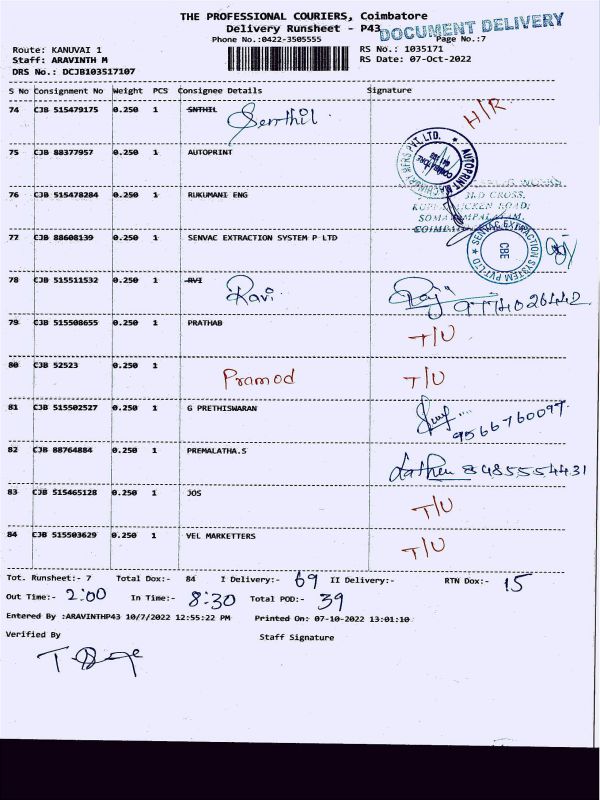 THE PROFESSIONAL COURIERS, Coimbatore
Delivery Runsheet - P43
DOCUMENT DELIVERY
Phone No.:0422-3505555
Page No.:7
Route: KANUVAI 1
RS No.: 1035171
Staff: ARAVINTH M
RS Date: 07-Oct-2022
DRS No.: DCJB103517107
S No Consignment No Weight PCS Consignee Details Signature
74 CJB 515479175 0.250 1 SNTHIL Senthil H/R
75 CJB 88377957 0.250 1 AUTOPRINT
AUTOPRINT MACHINERY MFRS PVT. LTD. COIMBATORE
76 CJB 515478284 0.250 1 RUKUMANI ENG
3LD CROSS,
77 CJB 88608139 0.250 1 SENVAC EXTRACTION SYSTEM P LTD
SENVAC EXTRACTION SYSTEM PVT LTD CBE
78 CJB 515511532 0.250 1 RVI Ravi Raja
79 CJB 515508655 0.250 1 PRATHAB T/U
80 CJB 52523 0.250 1 Pramod T/U
81 CJB 515502527 0.250 1 G PRETHISWARAN
9566760097
82 CJB 88764884 0.250 1 PREMALATHA.S 8485554431
83 CJB 515465128 0.250 1 JOS T/U
84 CJB 515503629 0.250 1 VEL MARKETTERS T/U
Tot. Runsheet:- 7 Total Dox:- 84 I Delivery:- 69 II Delivery:- RTN Dox:- 15
Out Time:- 2:00 In Time:- 8:30 Total POD:- 39
Entered By :ARAVINTHP43 10/7/2022 12:55:22 PM Printed On: 07-10-2022 13:01:10
Verified By Staff Signature